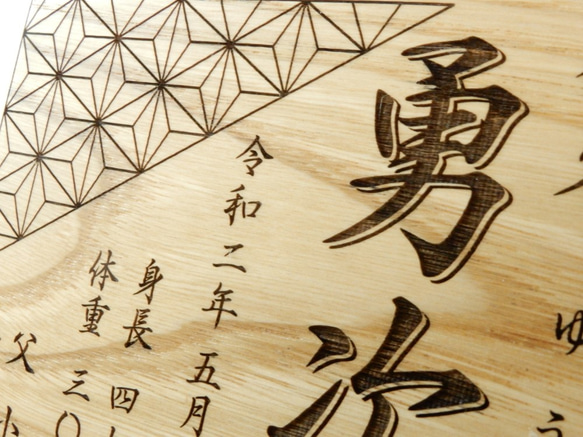 ゆ
う
勇次
令和二年五月
身長四
体重三〇
父